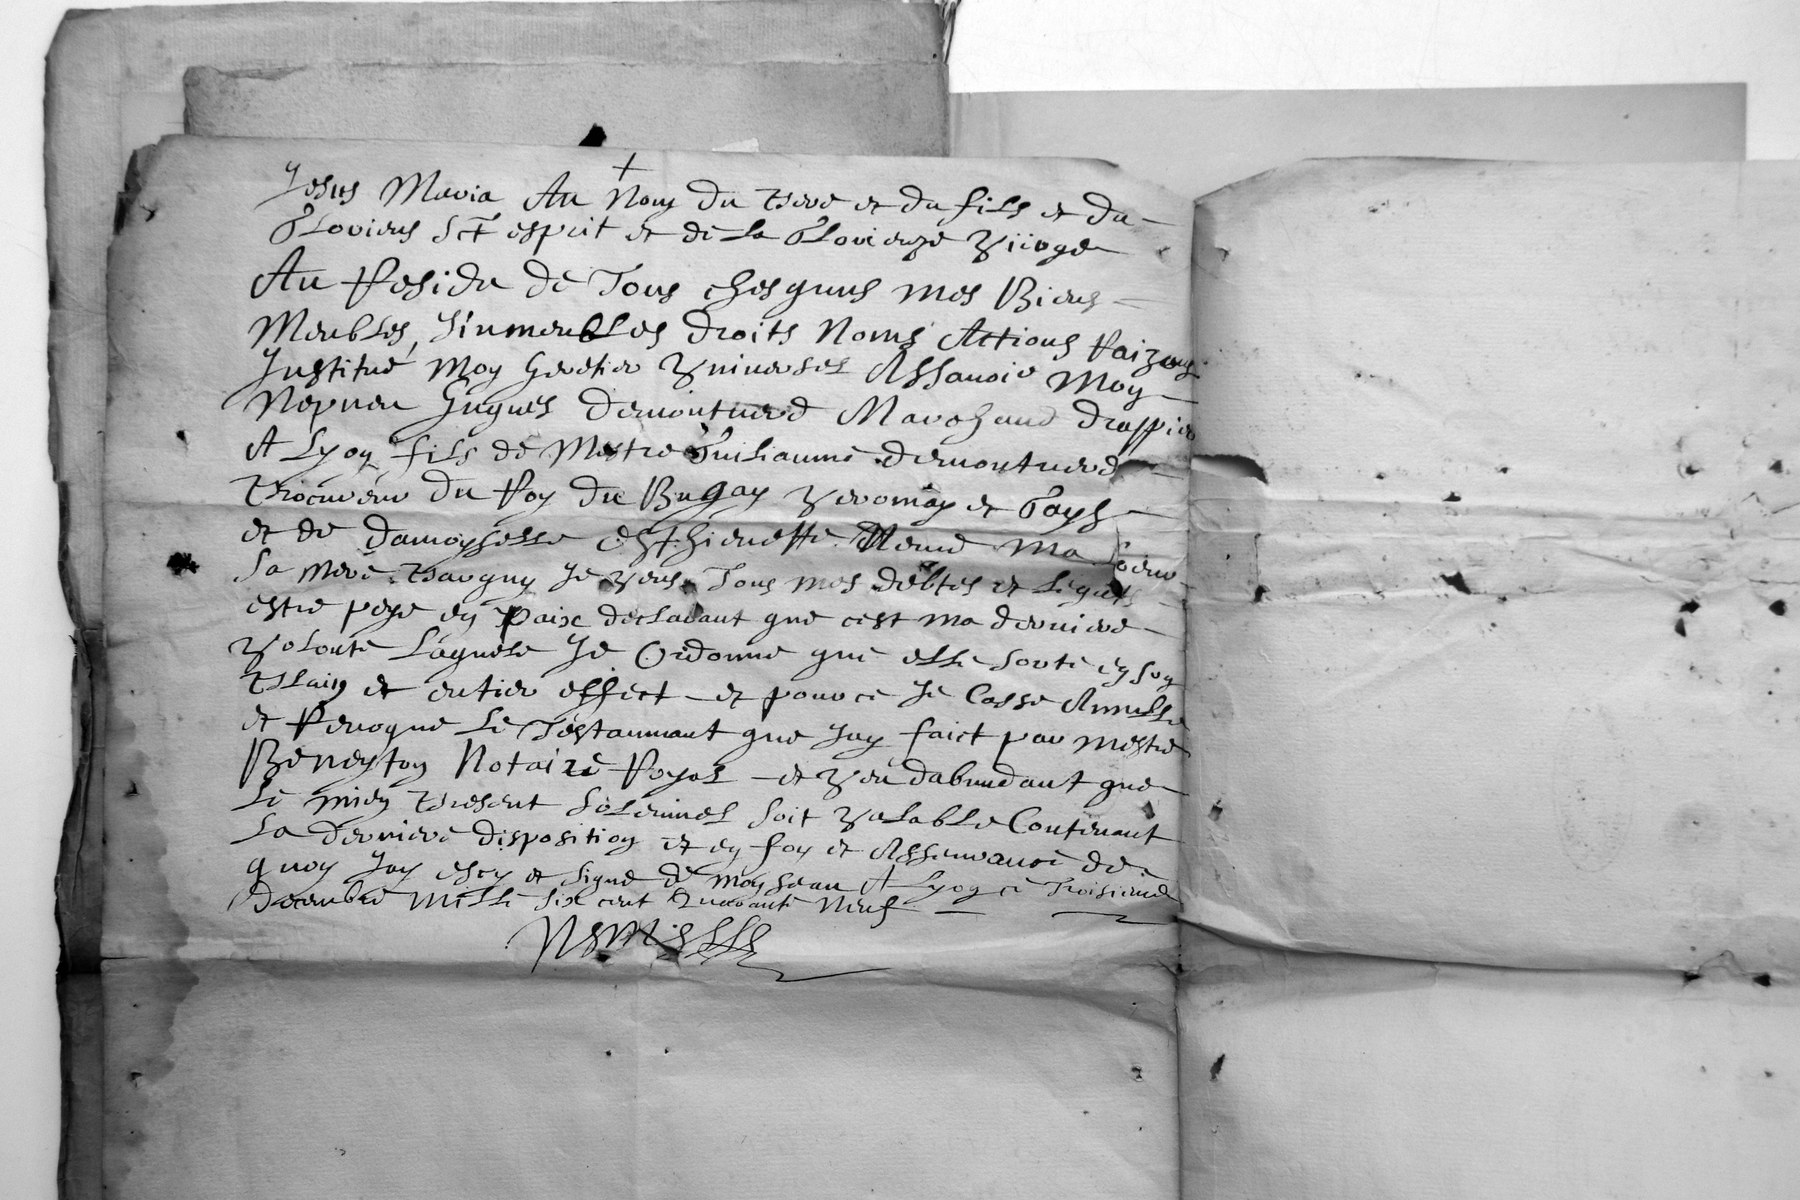 +
Jesus Maria Au Nom du Pere et du fils et du
Glorieus sct esprit et de la Glorieuze Vierge
Au Residu de Tous chesquns mes Biens
Meubles, Jinmeubles droits Noms Actions Raizons
Justitue Mon heretier Vniversel Assavoir Mon
Nepueu Hugues demontuerd Marchand drappier
A Lyon fils de Mestre Guiliaume demontuerd
Procureur du Roy du Bugay Veromay et Gayx
et de damoyselle esthienette ma soeur
sa mere Je veus Tous mes debtes et Legats
estre paye en paix declarant que cest ma derniere
Volonte Laquele Je Ordonne que elle sorte en son
Plain et entier effect et pour ce Je Casse Annulle
et Revoque Le Testaumant que Jay faict par Mestre
Beneyton Notaire Royal et Veu dabundant que
Le mien Present solennel soit Valable Contenant
La derniere disposition et en foy et Asseurance de
quoy Jay escry et signe de mon seau A Lyon ce Troisieme
decembre Mille six cent Quarante Neuf